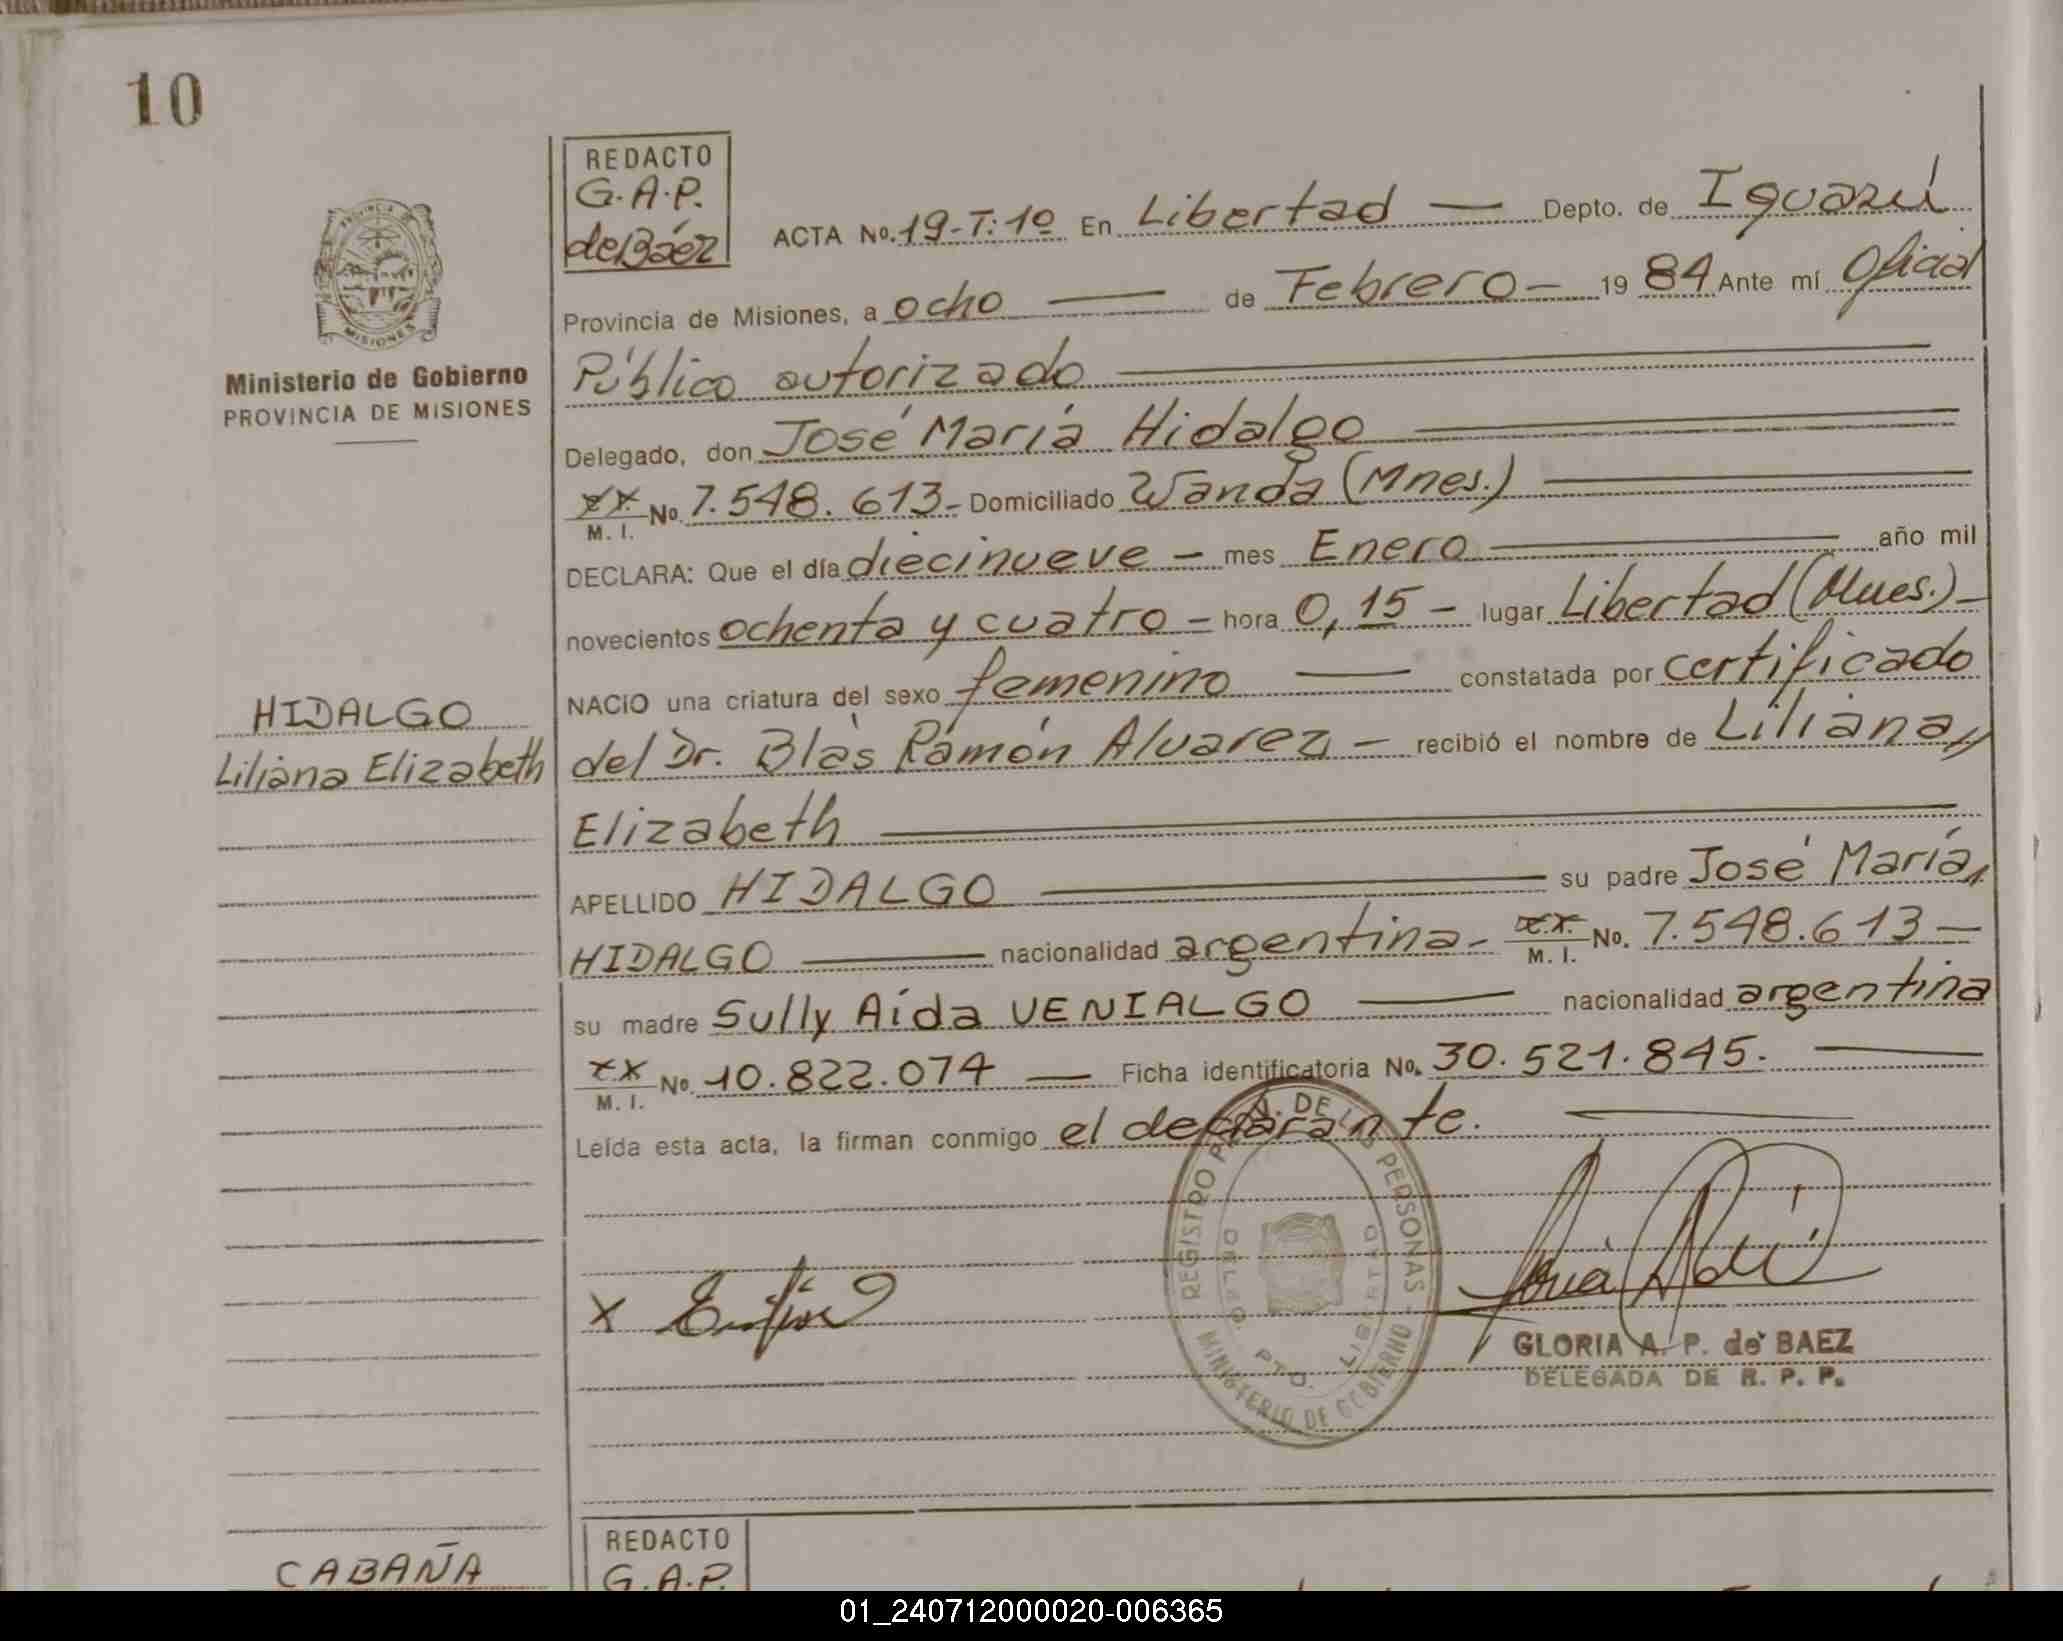 10
REDACTO
G.A.P.
de Báez
ACTA No. 19-T:1º En Libertad — Depto. de Iguazú
Provincia de Misiones, a ocho — de Febrero — 19 84 Ante mí Oficial
Público autorizado
Delegado, don José María Hidalgo
xx
M. I. No. 7.548.613- Domiciliado Wanda (Mnes.)
DECLARA: Que el día diecinueve — mes Enero — año mil
novecientos ochenta y cuatro — hora 0,15 — lugar Libertad (Mnes.) —
NACIO una criatura del sexo femenino — constatada por certificado
del Dr. Blás Ramón Alvarez — recibió el nombre de Liliana,,
Elizabeth
APELLIDO HIDALGO — su padre José María,
HIDALGO — nacionalidad argentina- x.x.
M. I. No. 7.548.613 —
su madre Sully Aída VENIALGO — nacionalidad argentina
xx
M. I. No. 10.822.074 — Ficha identificatoria No. 30.521.845. —
Leída esta acta, la firman conmigo el declarante. —
PROVINCIA DE
MISIONES
Ministerio de Gobierno
PROVINCIA DE MISIONES
HIDALGO
Liliana Elizabeth
X
REGISTRO PROV. DE LAS PERSONAS - MINISTERIO DE GOBIERNO
DELEG. PTO. LIBERTAD
GLORIA A. P. de BAEZ
DELEGADA DE R. P. P.
CABAÑA
REDACTO
G.A.P.
01_240712000020-006365